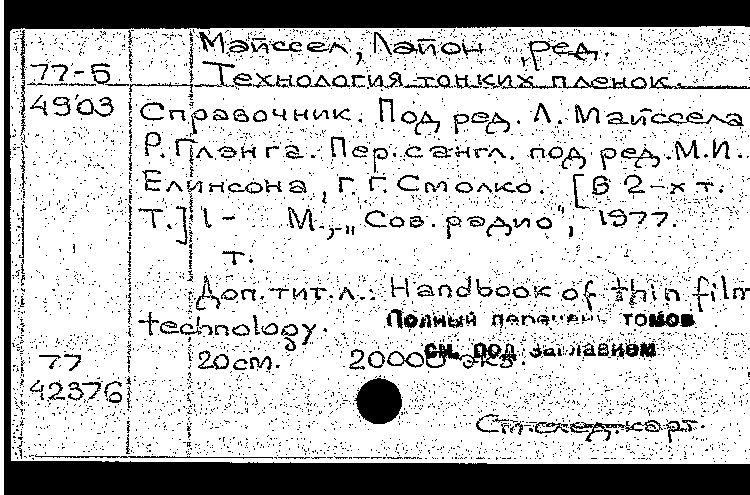 Майссел, Лайон, ред.
77-5 Технология тонких пленок.
4903 Справочник. Под ред. Л. Майссела
Р. Глэнга. Пер. с англ. под ред. М.И.
Елинсона, Г.Г. Смолко. [В 2-х т.
Т.] 1- М., „Сов. радио", 1977.
т.
Доп. тит. л.: Handbook of thin film
technology.
Полный перечень томов
см. под заглавием
77 20см. 20000 экз.
42376
См. след. карт.